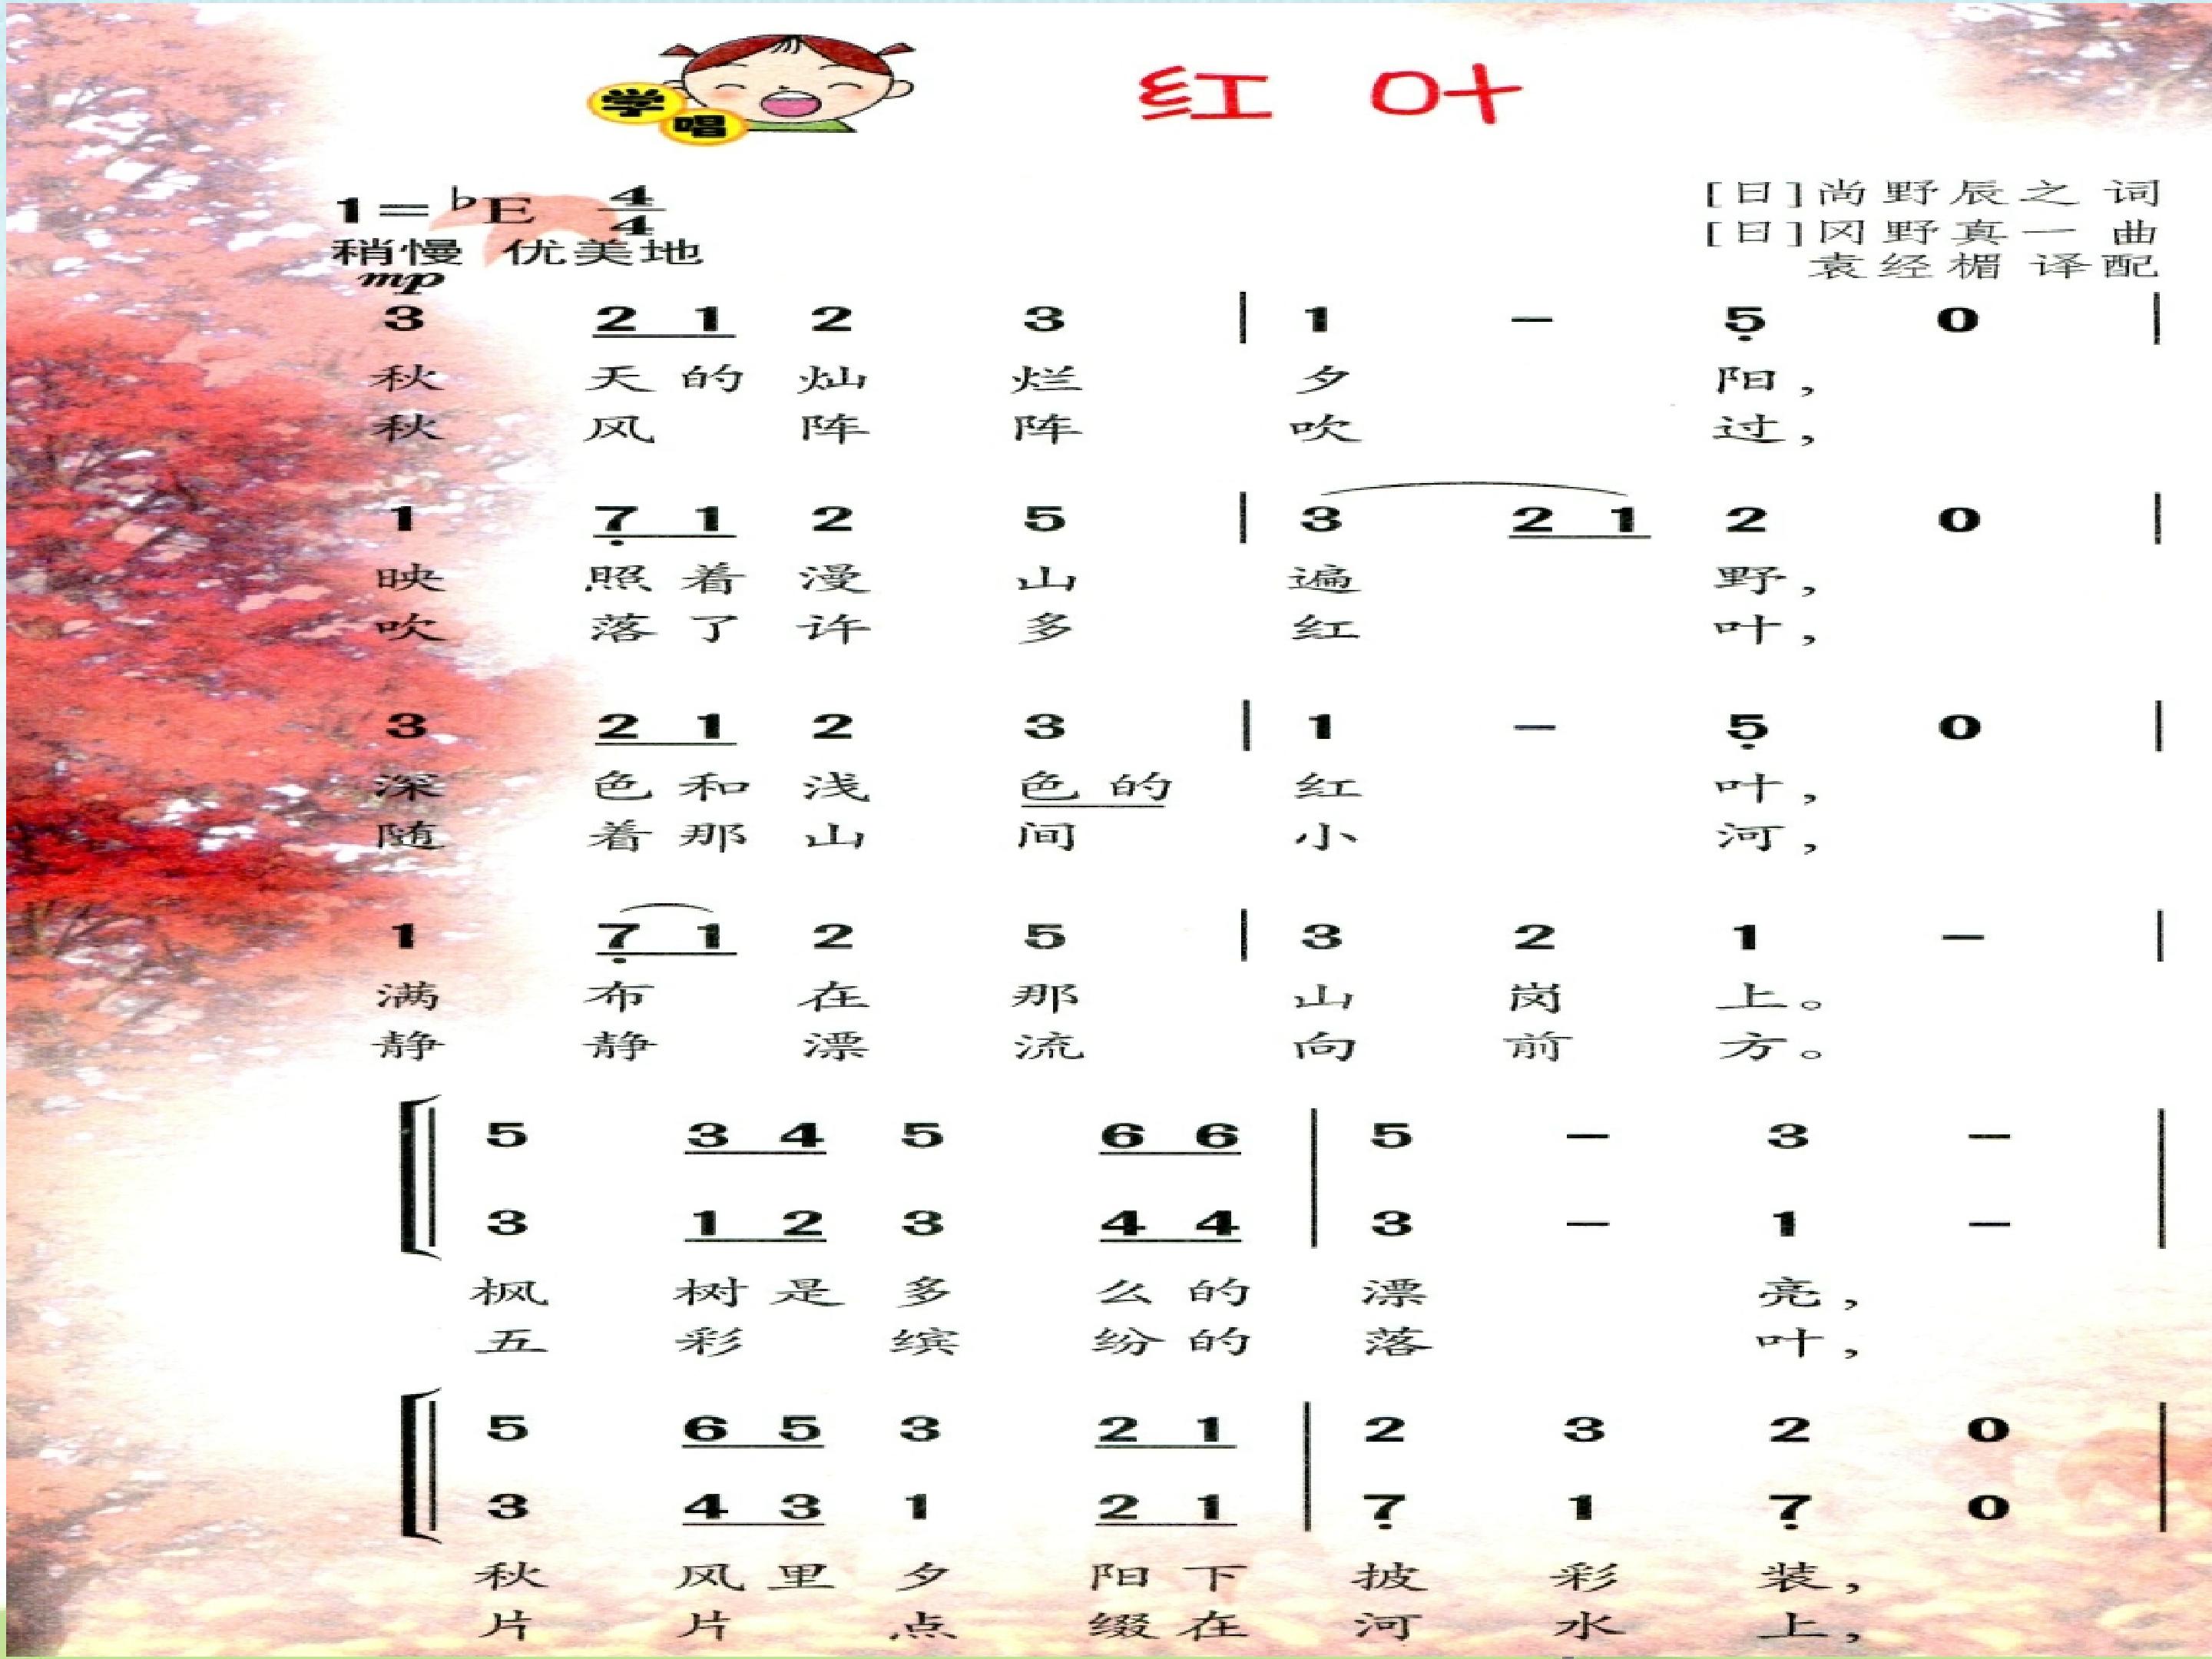 学唱
红 叶
1=♭E 4/4
[日]尚野辰之 词
[日]冈野真一 曲
稍慢 优美地
袁经楣 译配
mp
3 2 1 2 3 | 1 – 5̣ 0 |
秋 天的灿 烂 夕 阳,
秋 风 阵 阵 吹 过,
1 7̣ 1 2 5 | 3 2 1 2 0 |
映 照着漫 山 遍 野,
吹 落了许 多 红 叶,
3 2 1 2 3 | 1 – 5̣ 0 |
深 色和浅 色的 红 叶,
随 着那山 间 小 河,
1 7̣ 1 2 5 | 3 2 1 – |
满 布 在 那 山 岗 上。
静 静 漂 流 向 前 方。
5 3 4 5 6 6 | 5 – 3 – |
3 1 2 3 4 4 | 3 – 1 – |
枫 树是多 么的 漂 亮,
五 彩 缤 纷的 落 叶,
5 6 5 3 2 1 | 2 3 2 0 |
3 4 3 1 2 1 | 7̣ 1 7̣ 0 |
秋 风里夕 阳下 披 彩 装,
片 片 点 缀在 河 水 上,